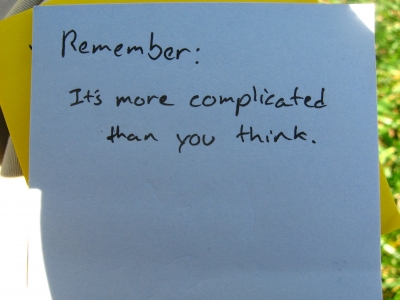 Remember:
It's more complicated
than you think.